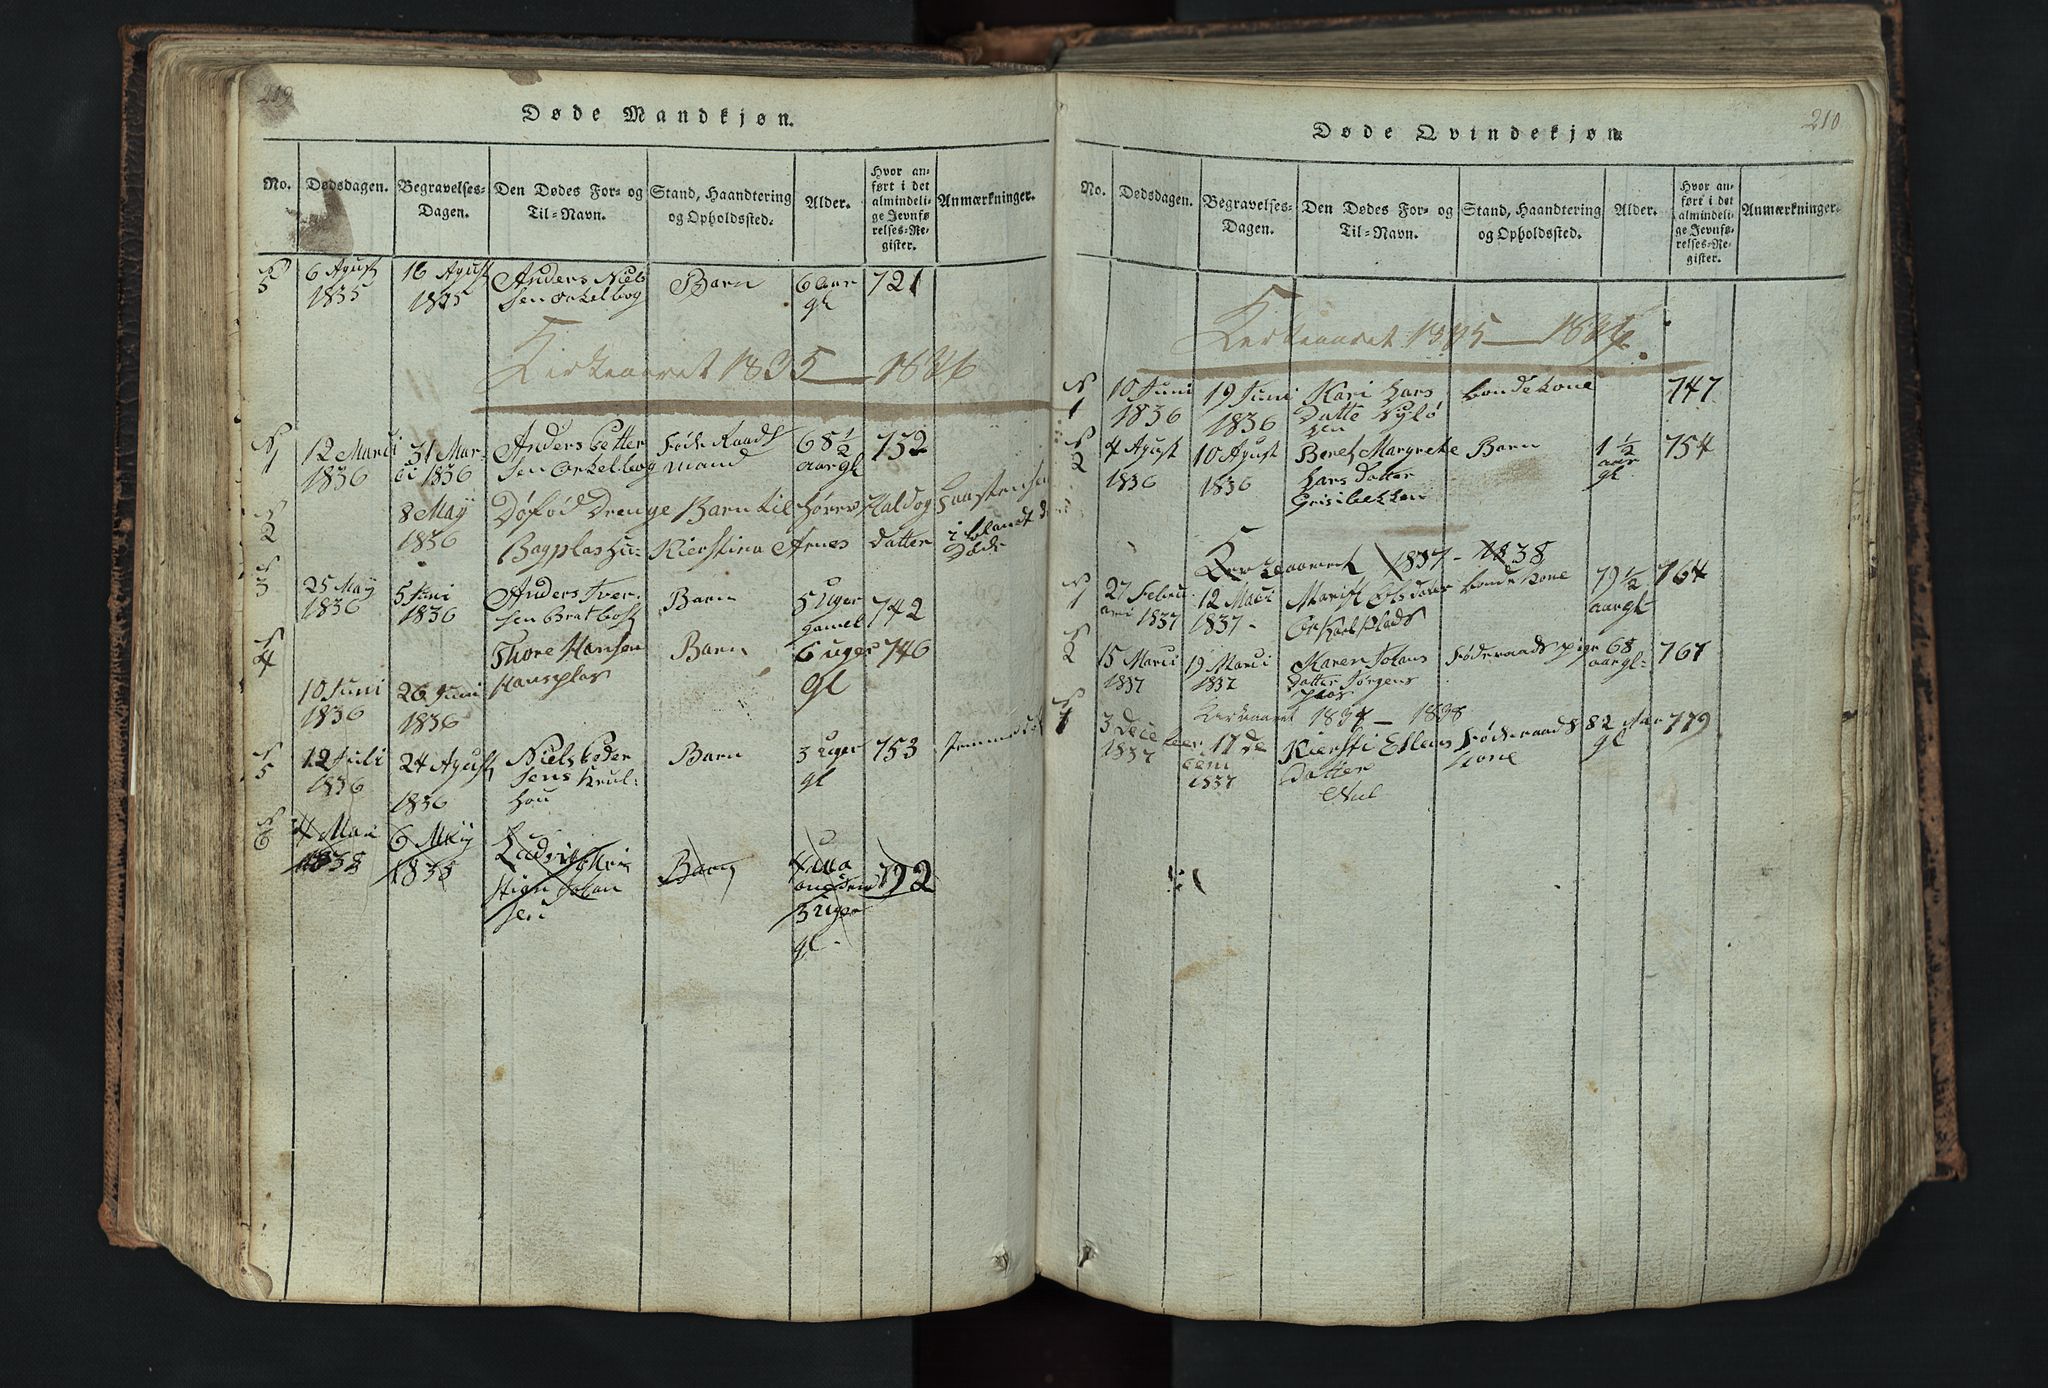 209
Døde Mandkjøn.
No.
Dødsdagen.
Begravelses-
Dagen.
Den Dødes For- og
Til-Navn.
Stand, Haandtering
og Opholdssted.
Alder.
Hvor an-
ført i det
almindeli-
ge Jevnfø-
relses-Re-
gister.
Anmærkninger.
N 5
6 Agust
1835
16 Agust
1835
Anders Niels
sen Orkelbog
Barn
6 aar
gl
721
Kirkeaaret 1835 — 1836
N 1
12 Marci
1836
31 Mar-
ci 1836
Anders Petter
sen Orkelbog
Føde Raads
mand
68 1/2
aar gl
752
N 2
8 Maij
1836
Døfød Drenge Barn til
Bagplas hu-
Kierstina Arnes
datter
i blandt d
Døde
N 3
25 Maij
1836
5 Juni
1836
Anders Iver-
sen Bratbost
Barn
5 Uger
gamel
742
N 4
10 Juni
1836
26 Juni
1836
Thore Hansen
Hansplas
Barn
6 uger
gl
746
N 5
12 Juli
1836
24 Agust
1836
Niels Peder
sens
Barn
3 uger
gl
753
N 6
4 Mai
1838
6 Maij
1838
Ladvig Kri
stian Johan
sen
Barn
4 Ma
aneder
3 Uger
gl
792
210
Døde Qvindekjøn
No.
Dødsdagen.
Begravelses-
Dagen.
Den Dødes For- og
Til-Navn.
Stand, Haandtering
og Opholdssted.
Alder.
Hvor an-
ført i det
almindeli-
ge Jevnfø-
relses-Re-
gister.
Anmærkninger.
Kerkeaaret 1835 — 1836
N 1
10 Juni
1836
19 Juni
1836
Kari Lars
Datte
bondekone
747
N 2
4 Agust
1836
10 Agust
1836
Beret Margrete
Lars datter
Grisibekken
Barn
1 1/2
aar
gl
754
1837 - 1838
N 1
27 Febru
ari 1837
12 Marci
1837
Marit Olsdater
bonde kone
79 1/2
aar gl
764
N 2
15 Marci
1837
19 Marci
1837
Karen Johans
datter Jørgens
plas
Føderaads pige
68
aar gl
767
Kerkeaaret 1837 — 1838
N 1
3 Dece
1837
17 de
cem
1837
Kiersti Ellens
Datter
Føderaads
kone
82 Aar
gl
779